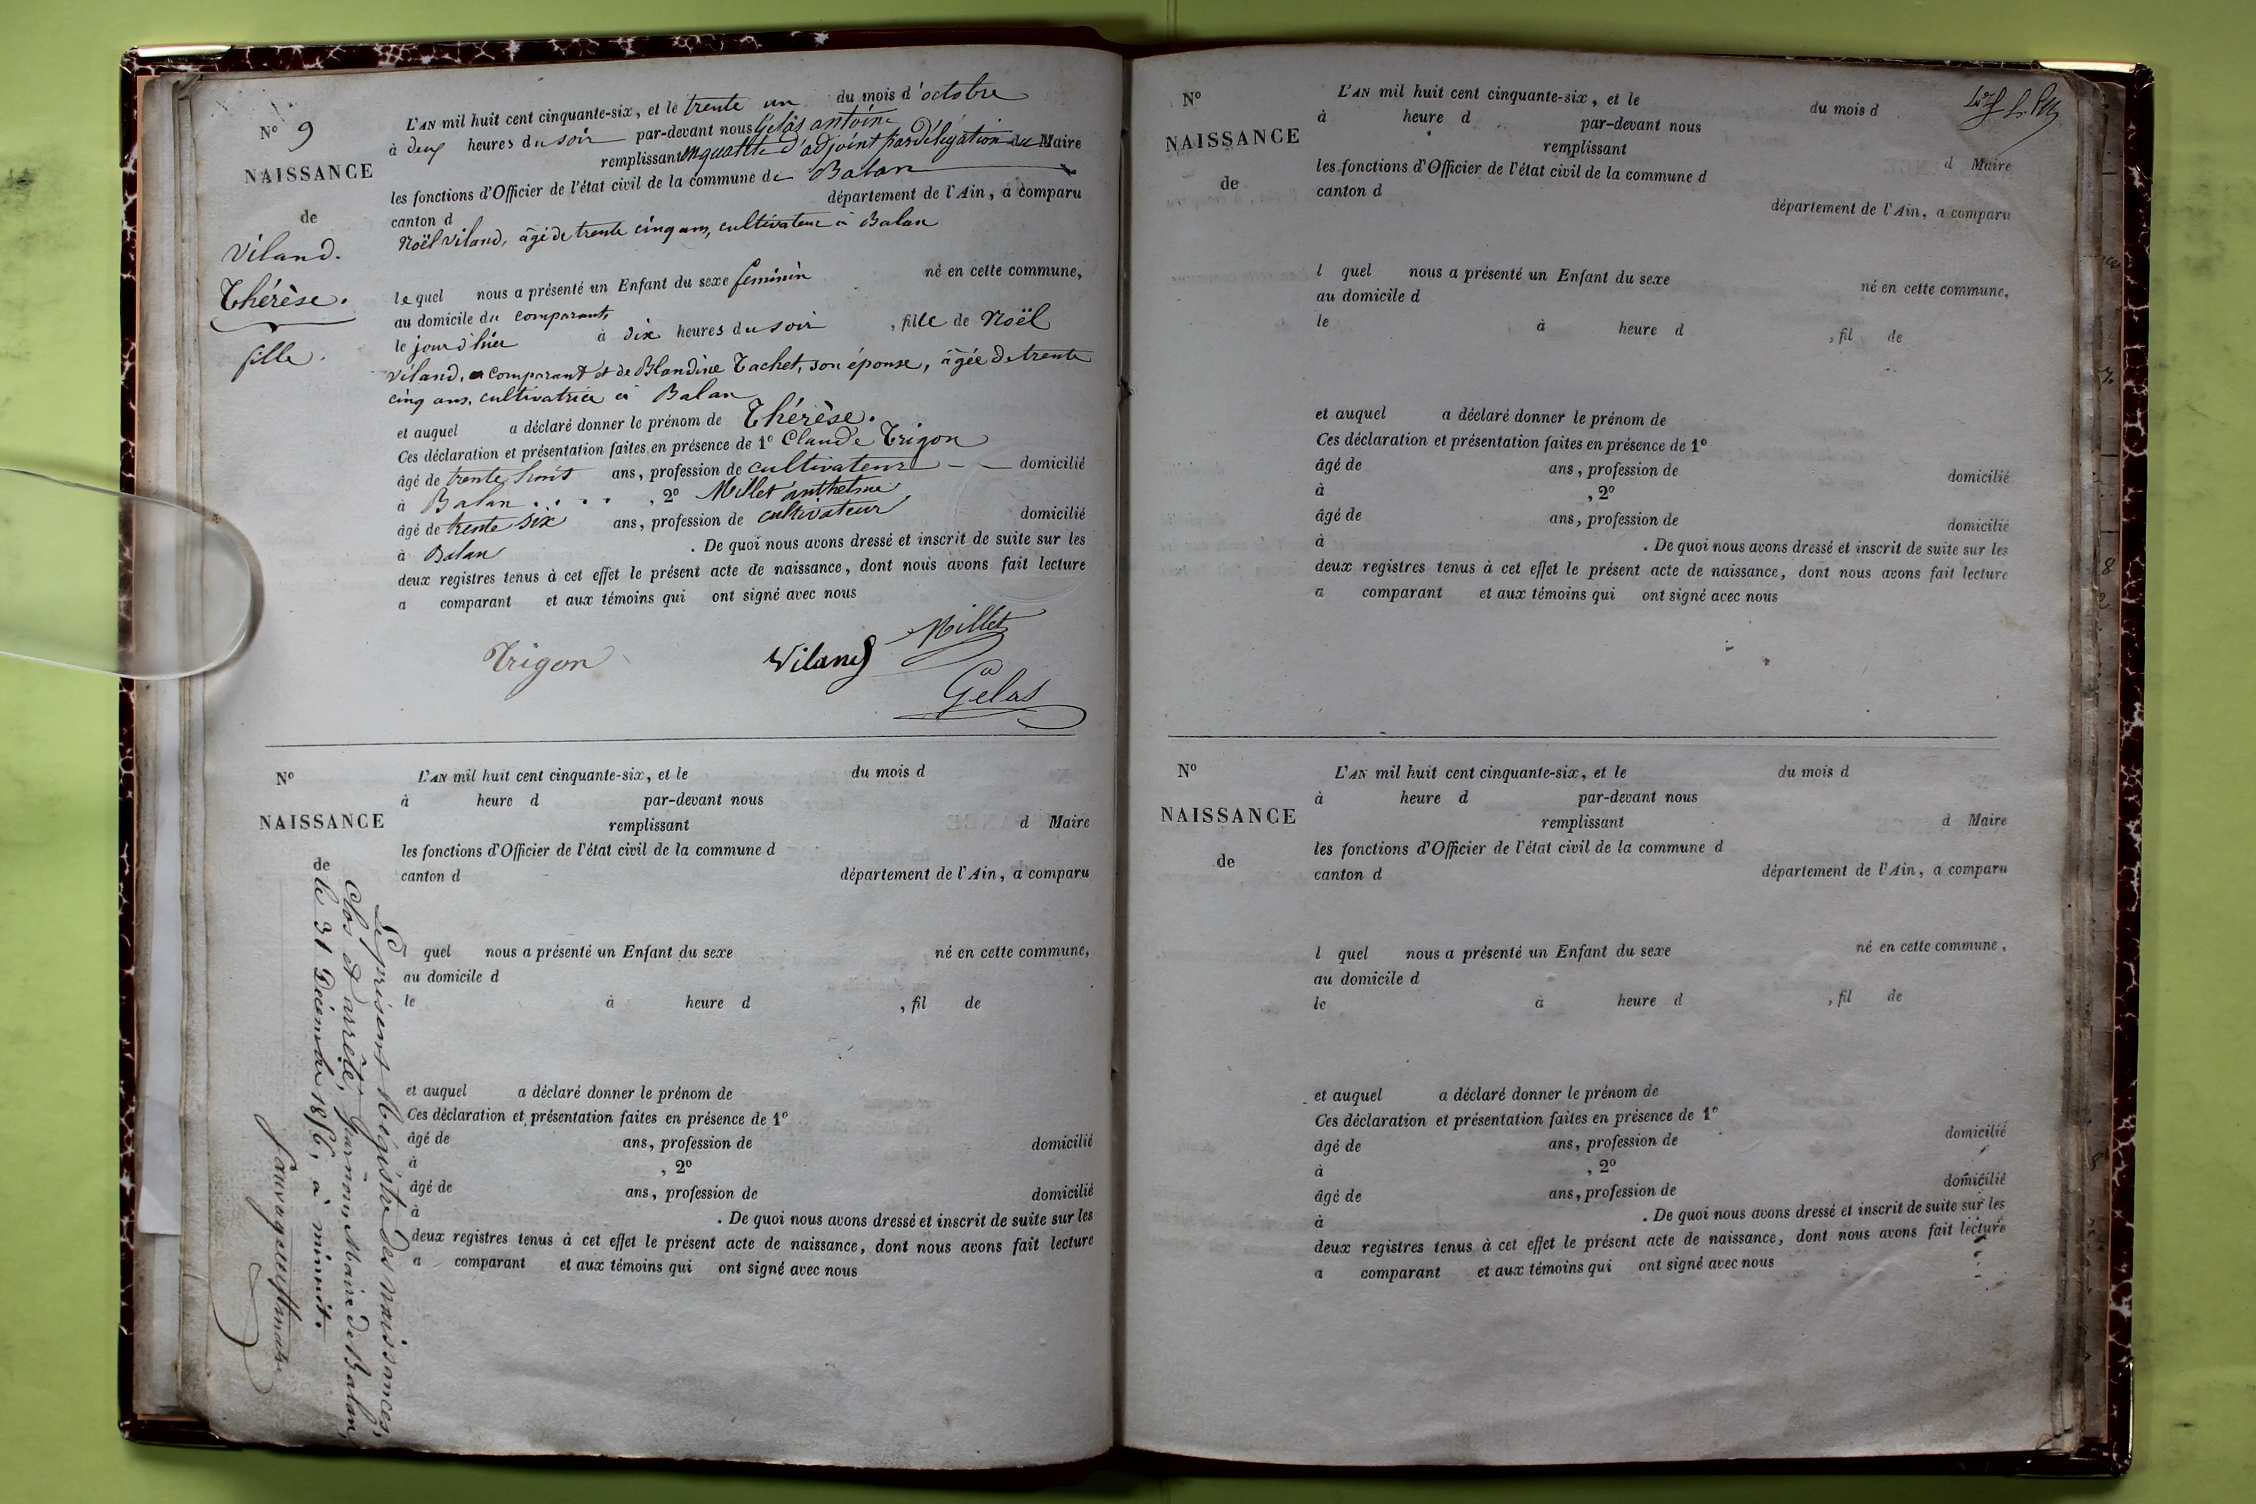 N° 9
NAISSANCE
de
Viland.
Thérèse.
fille.
L'AN mil huit cent cinquante-six, et le trente un du mois d'octobre
à deux heures du soir par-devant nous Gelas antoine
remplissant en qualité d'adjoint par délégation du Maire
les fonctions d'Officier de l'état civil de la commune de Balan
canton d département de l'Ain, a comparu
Noël Viland, âgé de trente cinq ans, cultivateur à Balan
lequel nous a présenté un Enfant du sexe feminin né en cette commune,
au domicile du comparant
le jour d'hier à dix heures du soir, fille de Noël
Viland, comparant et de Blandine Tachet, son épouse, âgée de trente
cinq ans, cultivatrice à Balan
et auquel a déclaré donner le prénom de Thérèse.
Ces déclaration et présentation faites en présence de 1° Claude Trigon
âgé de trente huit ans, profession de cultivateur domicilié
à Balan . . . . , 2° Millet anthelme
âgé de trente six ans, profession de cultivateur domicilié
à Balan . De quoi nous avons dressé et inscrit de suite sur les
deux registres tenus à cet effet le présent acte de naissance, dont nous avons fait lecture
a comparant et aux témoins qui ont signé avec nous
Trigon Viland Millet
Gelas
N°
NAISSANCE
de
L'AN mil huit cent cinquante-six, et le du mois d
à heure d par-devant nous
remplissant d Maire
les fonctions d'Officier de l'état civil de la commune d
canton d département de l'Ain, a comparu
l quel nous a présenté un Enfant du sexe né en cette commune,
au domicile d
le à heure d , fil de
et auquel a déclaré donner le prénom de
Ces déclaration et présentation faites en présence de 1°
âgé de ans, profession de domicilié
à , 2°
âgé de ans, profession de domicilié
à . De quoi nous avons dressé et inscrit de suite sur les
deux registres tenus à cet effet le présent acte de naissance, dont nous avons fait lecture
a comparant et aux témoins qui ont signé avec nous
Le présent Régistre des naissances,
Clos et arrêté, par nous Maire de Balan,
le 31 Décembre 1856, à minuit.
N°
NAISSANCE
de
L'AN mil huit cent cinquante-six, et le du mois d
à heure d par-devant nous
remplissant d Maire
les fonctions d'Officier de l'état civil de la commune d
canton d département de l'Ain, a comparu
l quel nous a présenté un Enfant du sexe né en cette commune,
au domicile d
le à heure d , fil de
et auquel a déclaré donner le prénom de
Ces déclaration et présentation faites en présence de 1°
âgé de ans, profession de domicilié
à , 2°
âgé de ans, profession de domicilié
à . De quoi nous avons dressé et inscrit de suite sur les
deux registres tenus à cet effet le présent acte de naissance, dont nous avons fait lecture
a comparant et aux témoins qui ont signé avec nous
N°
NAISSANCE
de
L'AN mil huit cent cinquante-six, et le du mois d
à heure d par-devant nous
remplissant d Maire
les fonctions d'Officier de l'état civil de la commune d
canton d département de l'Ain, a comparu
l quel nous a présenté un Enfant du sexe né en cette commune,
au domicile d
le à heure d , fil de
et auquel a déclaré donner le prénom de
Ces déclaration et présentation faites en présence de 1°
âgé de ans, profession de domicilié
à , 2°
âgé de ans, profession de domicilié
à . De quoi nous avons dressé et inscrit de suite sur les
deux registres tenus à cet effet le présent acte de naissance, dont nous avons fait lecture
a comparant et aux témoins qui ont signé avec nous